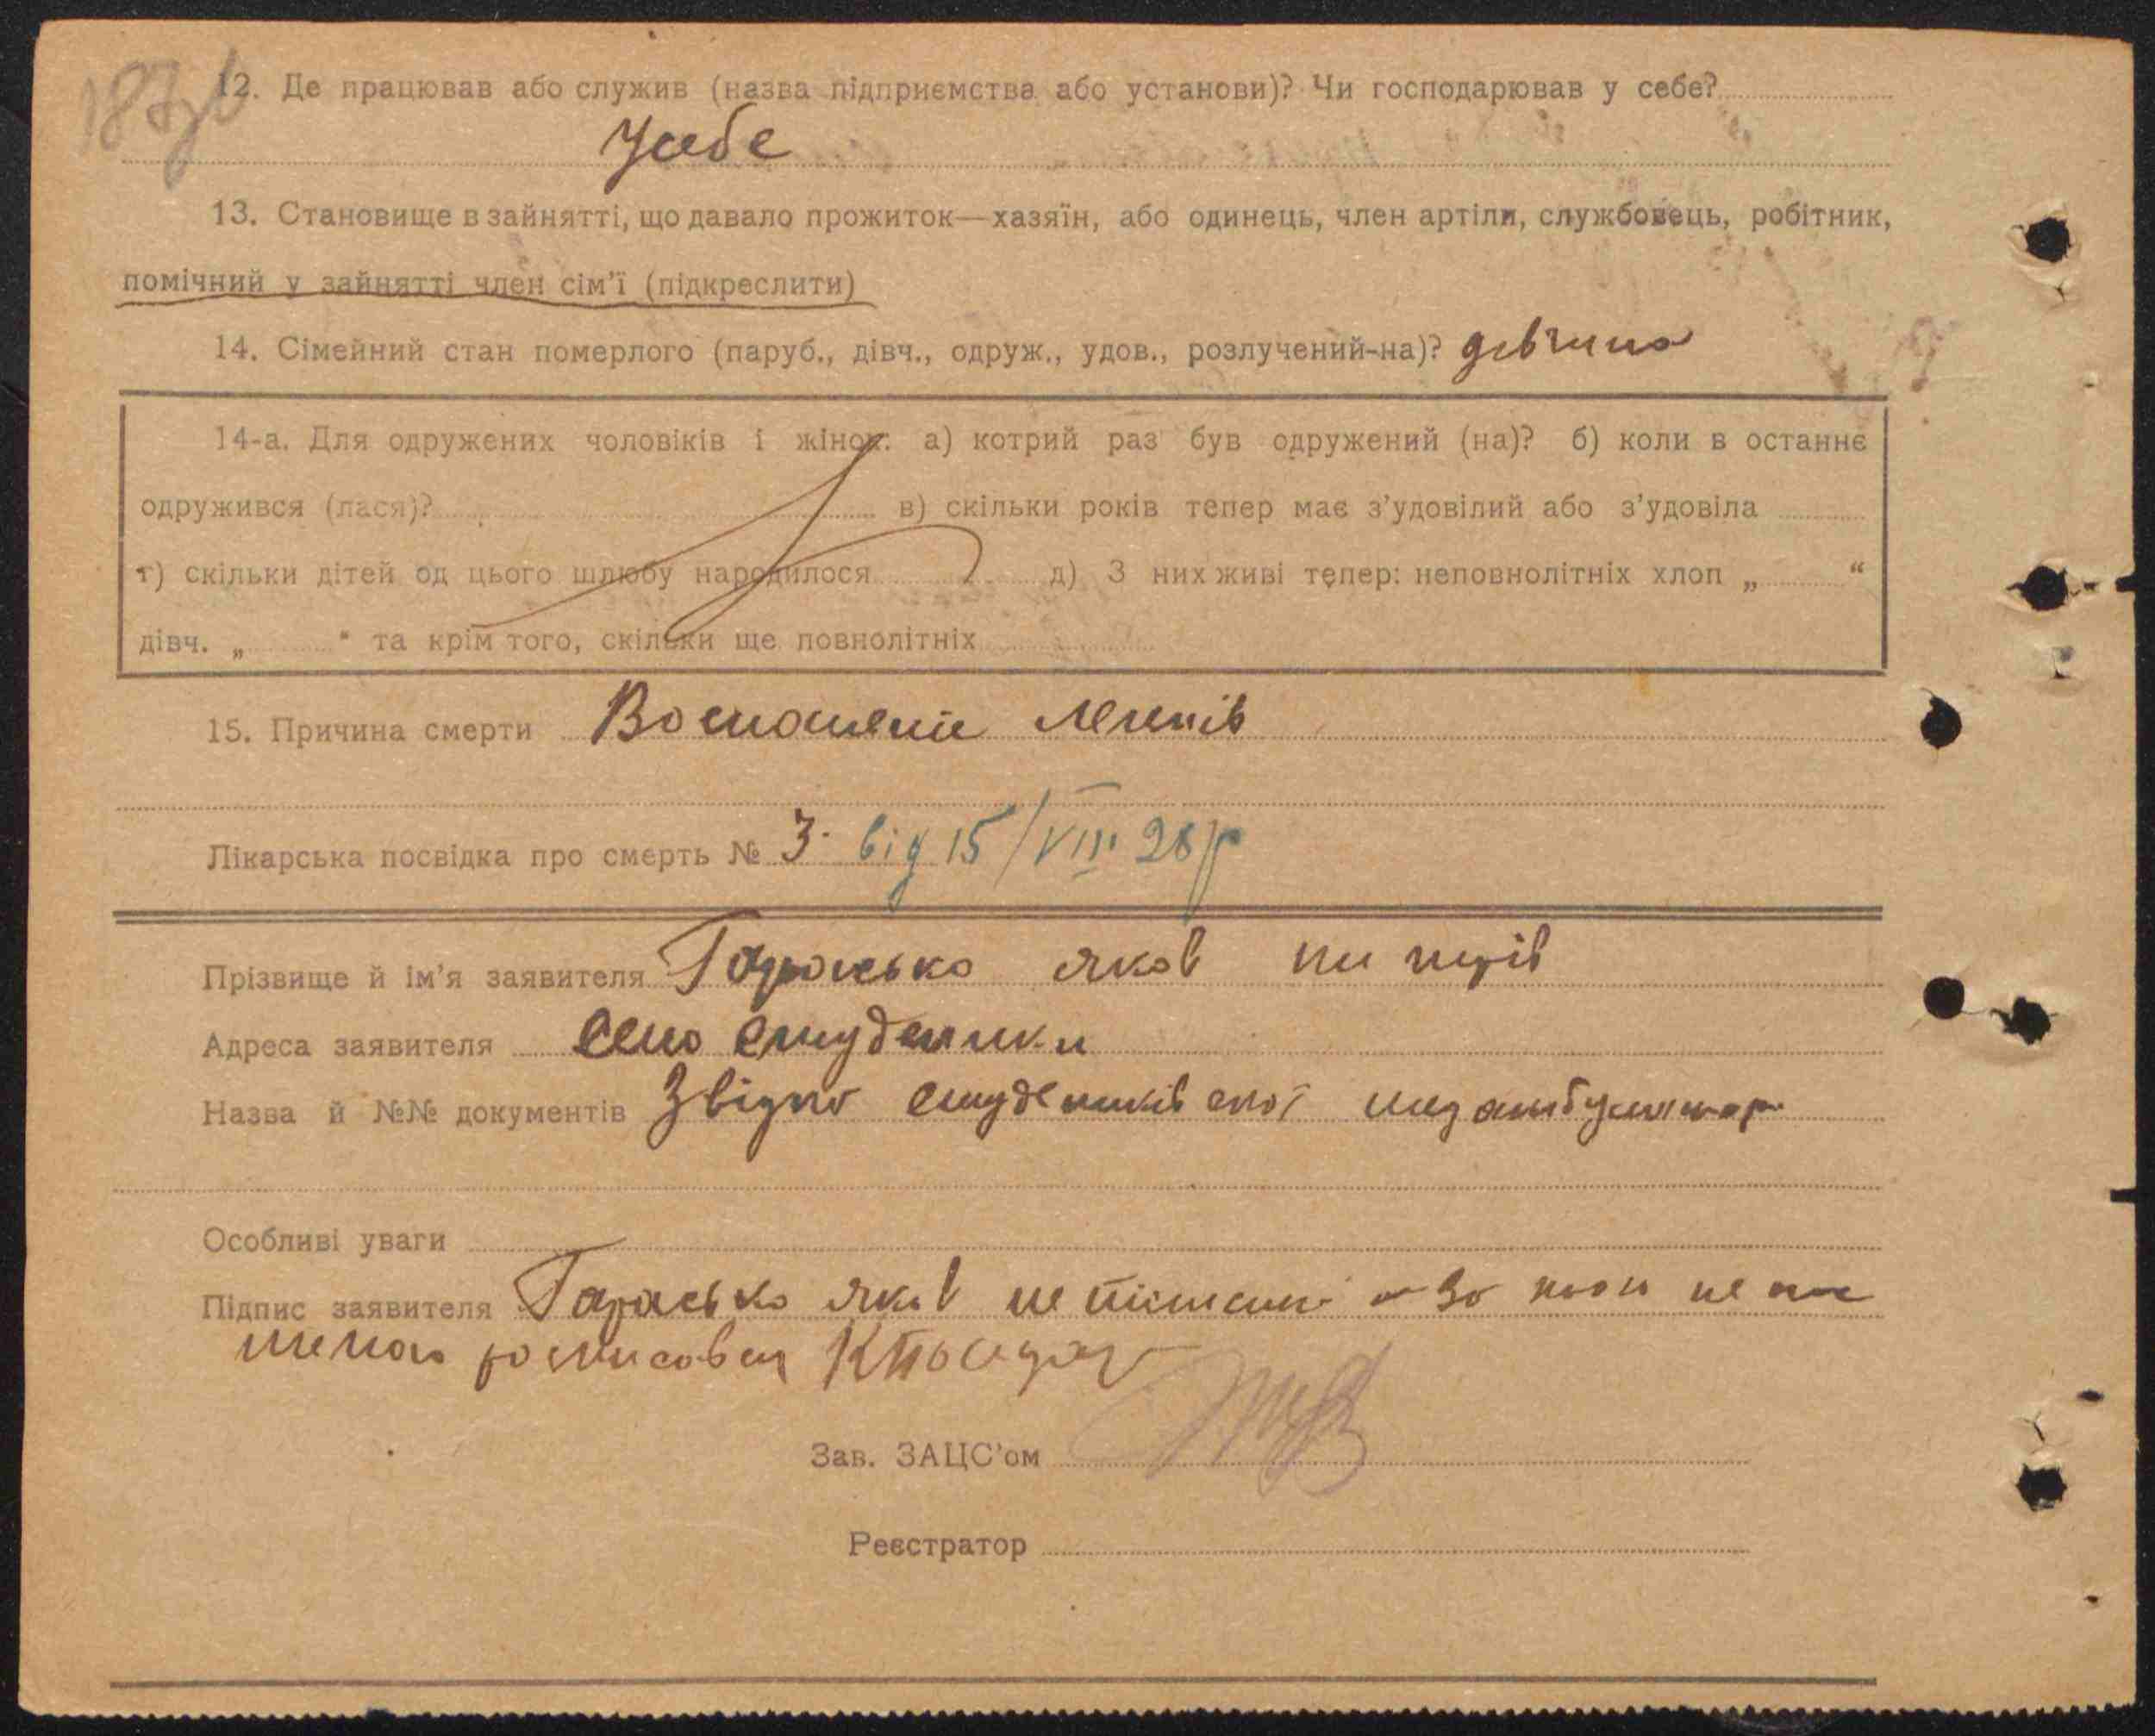 187зв
12. Де працював або служив (назва підприємства або установи)? Чи господарював у себе?
У себе
13. Становище в зайнятті, що давало прожиток—хазяїн, або одинець, член артіли, службовець, робітник,
помічний у зайнятті член сім'ї (підкреслити)
14. Сімейний стан померлого (паруб., дівч., одруж., удов., розлучений-на)? дівчина
14-а. Для одружених чоловіків і жінок: а) котрий раз був одружений (на)? б) коли в останнє
одружився (лася)? в) скільки років тепер має з'удовілий або з'удовіла
г) скільки дітей од цього шлюбу народилося д) З них живі тепер: неповнолітніх хлоп „ “
дівч. „ “ та крім того, скільки ще повнолітніх
15. Причина смерти Восполение легків
Лікарська посвідка про смерть № 3 від 15/VIII 28 р
Прізвище й ім'я заявителя Гарасько яков
Адреса заявителя Село Студеники
Назва й №№ документів Звідка студениківской
Особливі уваги
Підпис заявителя Гарасько яков
Зав. ЗАЦС'ом
Реєстратор